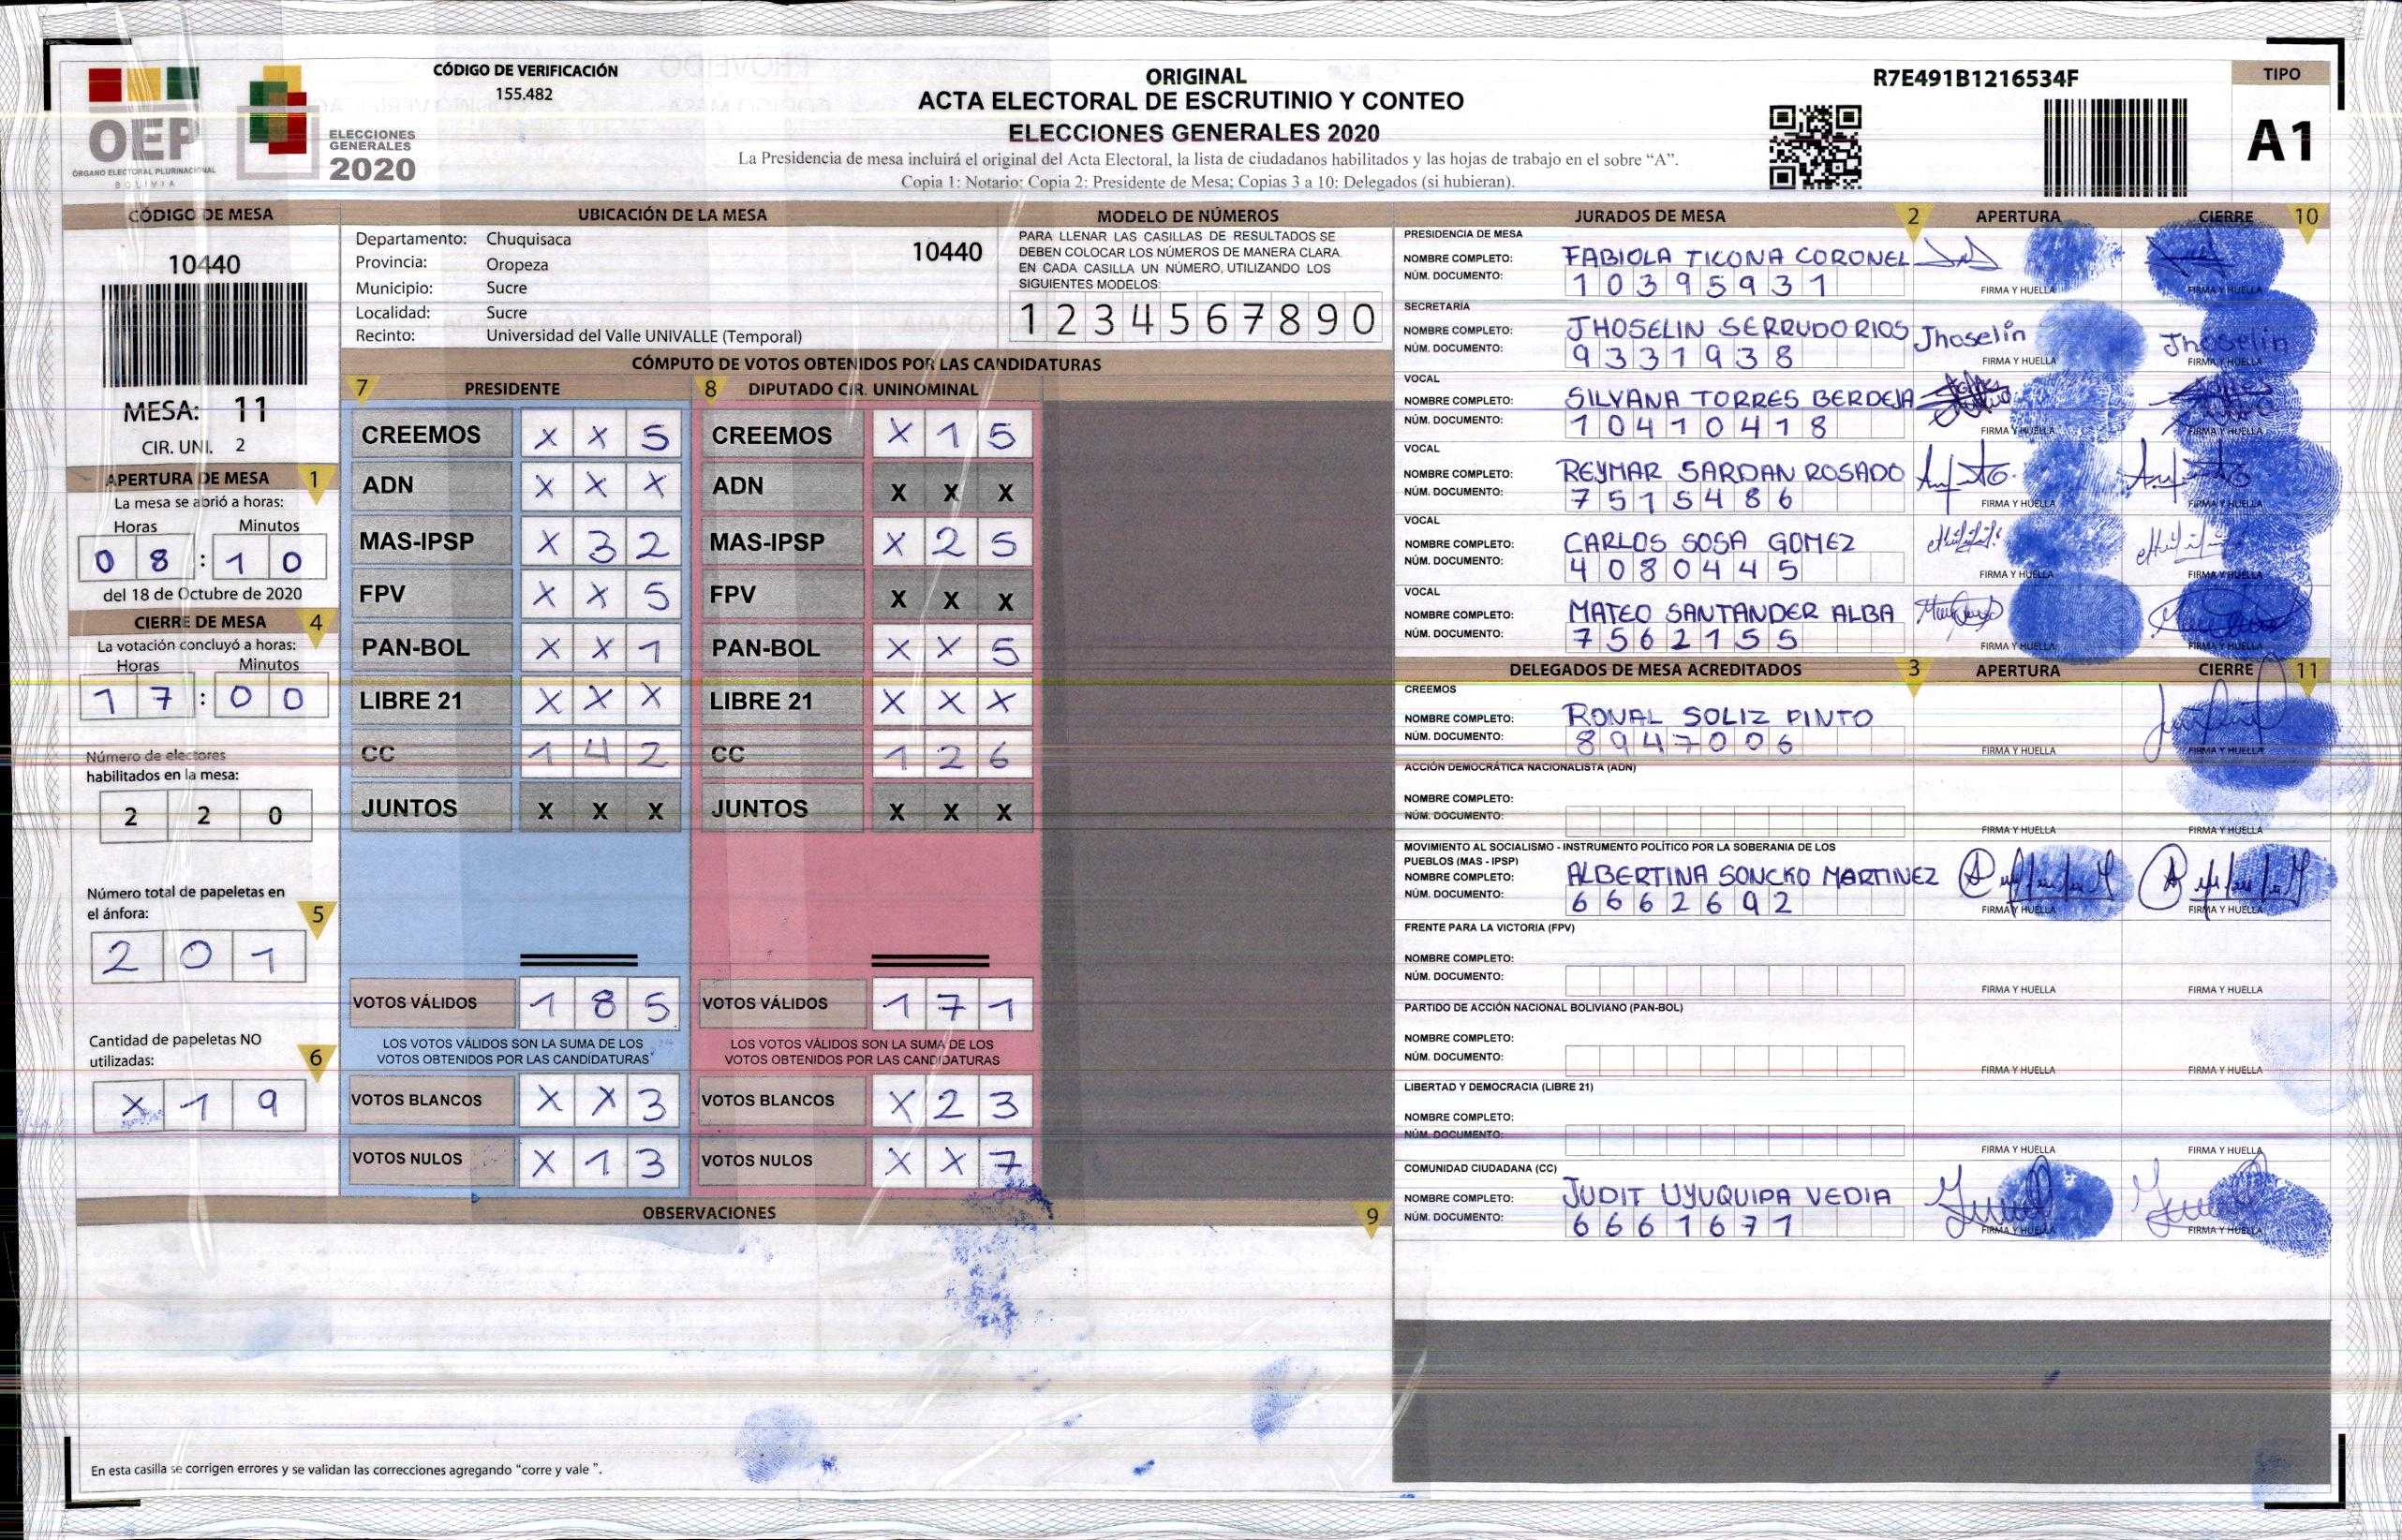 CÓDIGO DE VERIFICACIÓN
155.482
OEP
ÓRGANO ELECTORAL PLURINACIONAL
BOLIVIA
ELECCIONES
GENERALES
2020
ORIGINAL
ACTA ELECTORAL DE ESCRUTINIO Y CONTEO
ELECCIONES GENERALES 2020
La Presidencia de mesa incluirá el original del Acta Electoral, la lista de ciudadanos habilitados y las hojas de trabajo en el sobre “A”.
Copia 1: Notario; Copia 2: Presidente de Mesa; Copias 3 a 10: Delegados (si hubieran).
R7E491B1216534F
TIPO
A1
CÓDIGO DE MESA
10440
MESA: 11
CIR. UNI. 2
APERTURA DE MESA 1
La mesa se abrió a horas:
Horas Minutos
0 8 : 1 0
del 18 de Octubre de 2020
CIERRE DE MESA 4
La votación concluyó a horas:
Horas Minutos
1 7 : 0 0
Número de electores
habilitados en la mesa:
2 2 0
Número total de papeletas en
el ánfora: 5
2 0 1
Cantidad de papeletas NO
utilizadas: 6
X 1 9
UBICACIÓN DE LA MESA
Departamento: Chuquisaca 10440
Provincia: Oropeza
Municipio: Sucre
Localidad: Sucre
Recinto: Universidad del Valle UNIVALLE (Temporal)
MODELO DE NÚMEROS
PARA LLENAR LAS CASILLAS DE RESULTADOS SE
DEBEN COLOCAR LOS NÚMEROS DE MANERA CLARA.
EN CADA CASILLA UN NÚMERO, UTILIZANDO LOS
SIGUIENTES MODELOS:
1 2 3 4 5 6 7 8 9 0
CÓMPUTO DE VOTOS OBTENIDOS POR LAS CANDIDATURAS
7 PRESIDENTE 8 DIPUTADO CIR. UNINOMINAL
CREEMOS X X 5 CREEMOS X 1 5
ADN X X X ADN X X X
MAS-IPSP X 3 2 MAS-IPSP X 2 5
FPV X X 5 FPV X X X
PAN-BOL X X 1 PAN-BOL X X 5
LIBRE 21 X X X LIBRE 21 X X X
CC 1 4 2 CC 1 2 6
JUNTOS X X X JUNTOS X X X
VOTOS VÁLIDOS 1 8 5 VOTOS VÁLIDOS 1 7 1
LOS VOTOS VÁLIDOS SON LA SUMA DE LOS LOS VOTOS VÁLIDOS SON LA SUMA DE LOS
VOTOS OBTENIDOS POR LAS CANDIDATURAS VOTOS OBTENIDOS POR LAS CANDIDATURAS
VOTOS BLANCOS X X 3 VOTOS BLANCOS X 2 3
VOTOS NULOS X 1 3 VOTOS NULOS X X 7
OBSERVACIONES 9
En esta casilla se corrigen errores y se validan las correcciones agregando “corre y vale ”.
JURADOS DE MESA 2 APERTURA CIERRE 10
PRESIDENCIA DE MESA
NOMBRE COMPLETO: FABIOLA TICONA CORONEL
NÚM. DOCUMENTO: 10395931
FIRMA Y HUELLA FIRMA Y HUELLA
SECRETARÍA
NOMBRE COMPLETO: JHOSELIN SERRUDO RIOS Jhoselin Jhoselin
NÚM. DOCUMENTO: 9331938
FIRMA Y HUELLA FIRMA Y HUELLA
VOCAL
NOMBRE COMPLETO: SILVANA TORRES BERDEJA
NÚM. DOCUMENTO: 10410418
FIRMA Y HUELLA FIRMA Y HUELLA
VOCAL
NOMBRE COMPLETO: REYMAR SARDAN ROSADO
NÚM. DOCUMENTO: 7515486
FIRMA Y HUELLA FIRMA Y HUELLA
VOCAL
NOMBRE COMPLETO: CARLOS SOSA GOMEZ
NÚM. DOCUMENTO: 4080445
FIRMA Y HUELLA FIRMA Y HUELLA
VOCAL
NOMBRE COMPLETO: MATEO SANTANDER ALBA
NÚM. DOCUMENTO: 7562155
FIRMA Y HUELLA FIRMA Y HUELLA
DELEGADOS DE MESA ACREDITADOS 3 APERTURA CIERRE 11
CREEMOS
NOMBRE COMPLETO: RONAL SOLIZ PINTO
NÚM. DOCUMENTO: 8947006
FIRMA Y HUELLA FIRMA Y HUELLA
ACCIÓN DEMOCRÁTICA NACIONALISTA (ADN)
NOMBRE COMPLETO:
NÚM. DOCUMENTO:
FIRMA Y HUELLA FIRMA Y HUELLA
MOVIMIENTO AL SOCIALISMO - INSTRUMENTO POLÍTICO POR LA SOBERANIA DE LOS
PUEBLOS (MAS - IPSP)
NOMBRE COMPLETO: ALBERTINA SONCKO MARTINEZ
NÚM. DOCUMENTO: 6662692
FIRMA Y HUELLA FIRMA Y HUELLA
FRENTE PARA LA VICTORIA (FPV)
NOMBRE COMPLETO:
NÚM. DOCUMENTO:
FIRMA Y HUELLA FIRMA Y HUELLA
PARTIDO DE ACCIÓN NACIONAL BOLIVIANO (PAN-BOL)
NOMBRE COMPLETO:
NÚM. DOCUMENTO:
FIRMA Y HUELLA FIRMA Y HUELLA
LIBERTAD Y DEMOCRACIA (LIBRE 21)
NOMBRE COMPLETO:
NÚM. DOCUMENTO:
FIRMA Y HUELLA FIRMA Y HUELLA
COMUNIDAD CIUDADANA (CC)
NOMBRE COMPLETO: JUDIT UYUQUIPA VEDIA
NÚM. DOCUMENTO: 6661671
FIRMA Y HUELLA FIRMA Y HUELLA